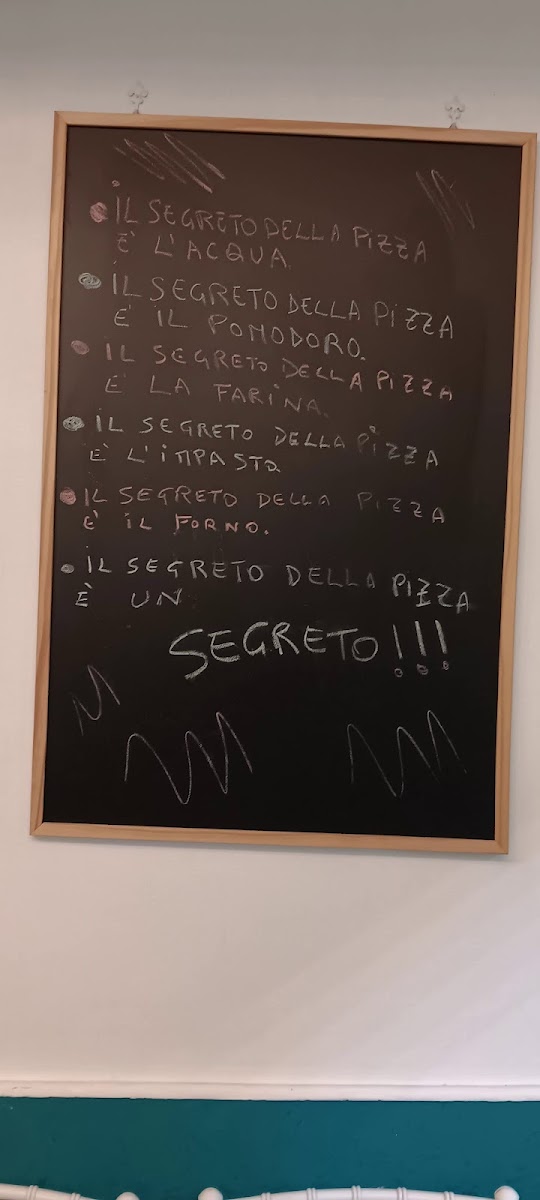 IL SEGRETO DELLA PIZZA
È L'ACQUA.
IL SEGRETO DELLA PIZZA
E' IL POMODORO.
IL SEGRETO DELLA PIZZA
E' LA FARINA.
IL SEGRETO DELLA PIZZA
È L'IMPASTO
IL SEGRETO DELLA PIZZA
È IL FORNO.
IL SEGRETO DELLA PIZZA
È UN
SEGRETO!!!